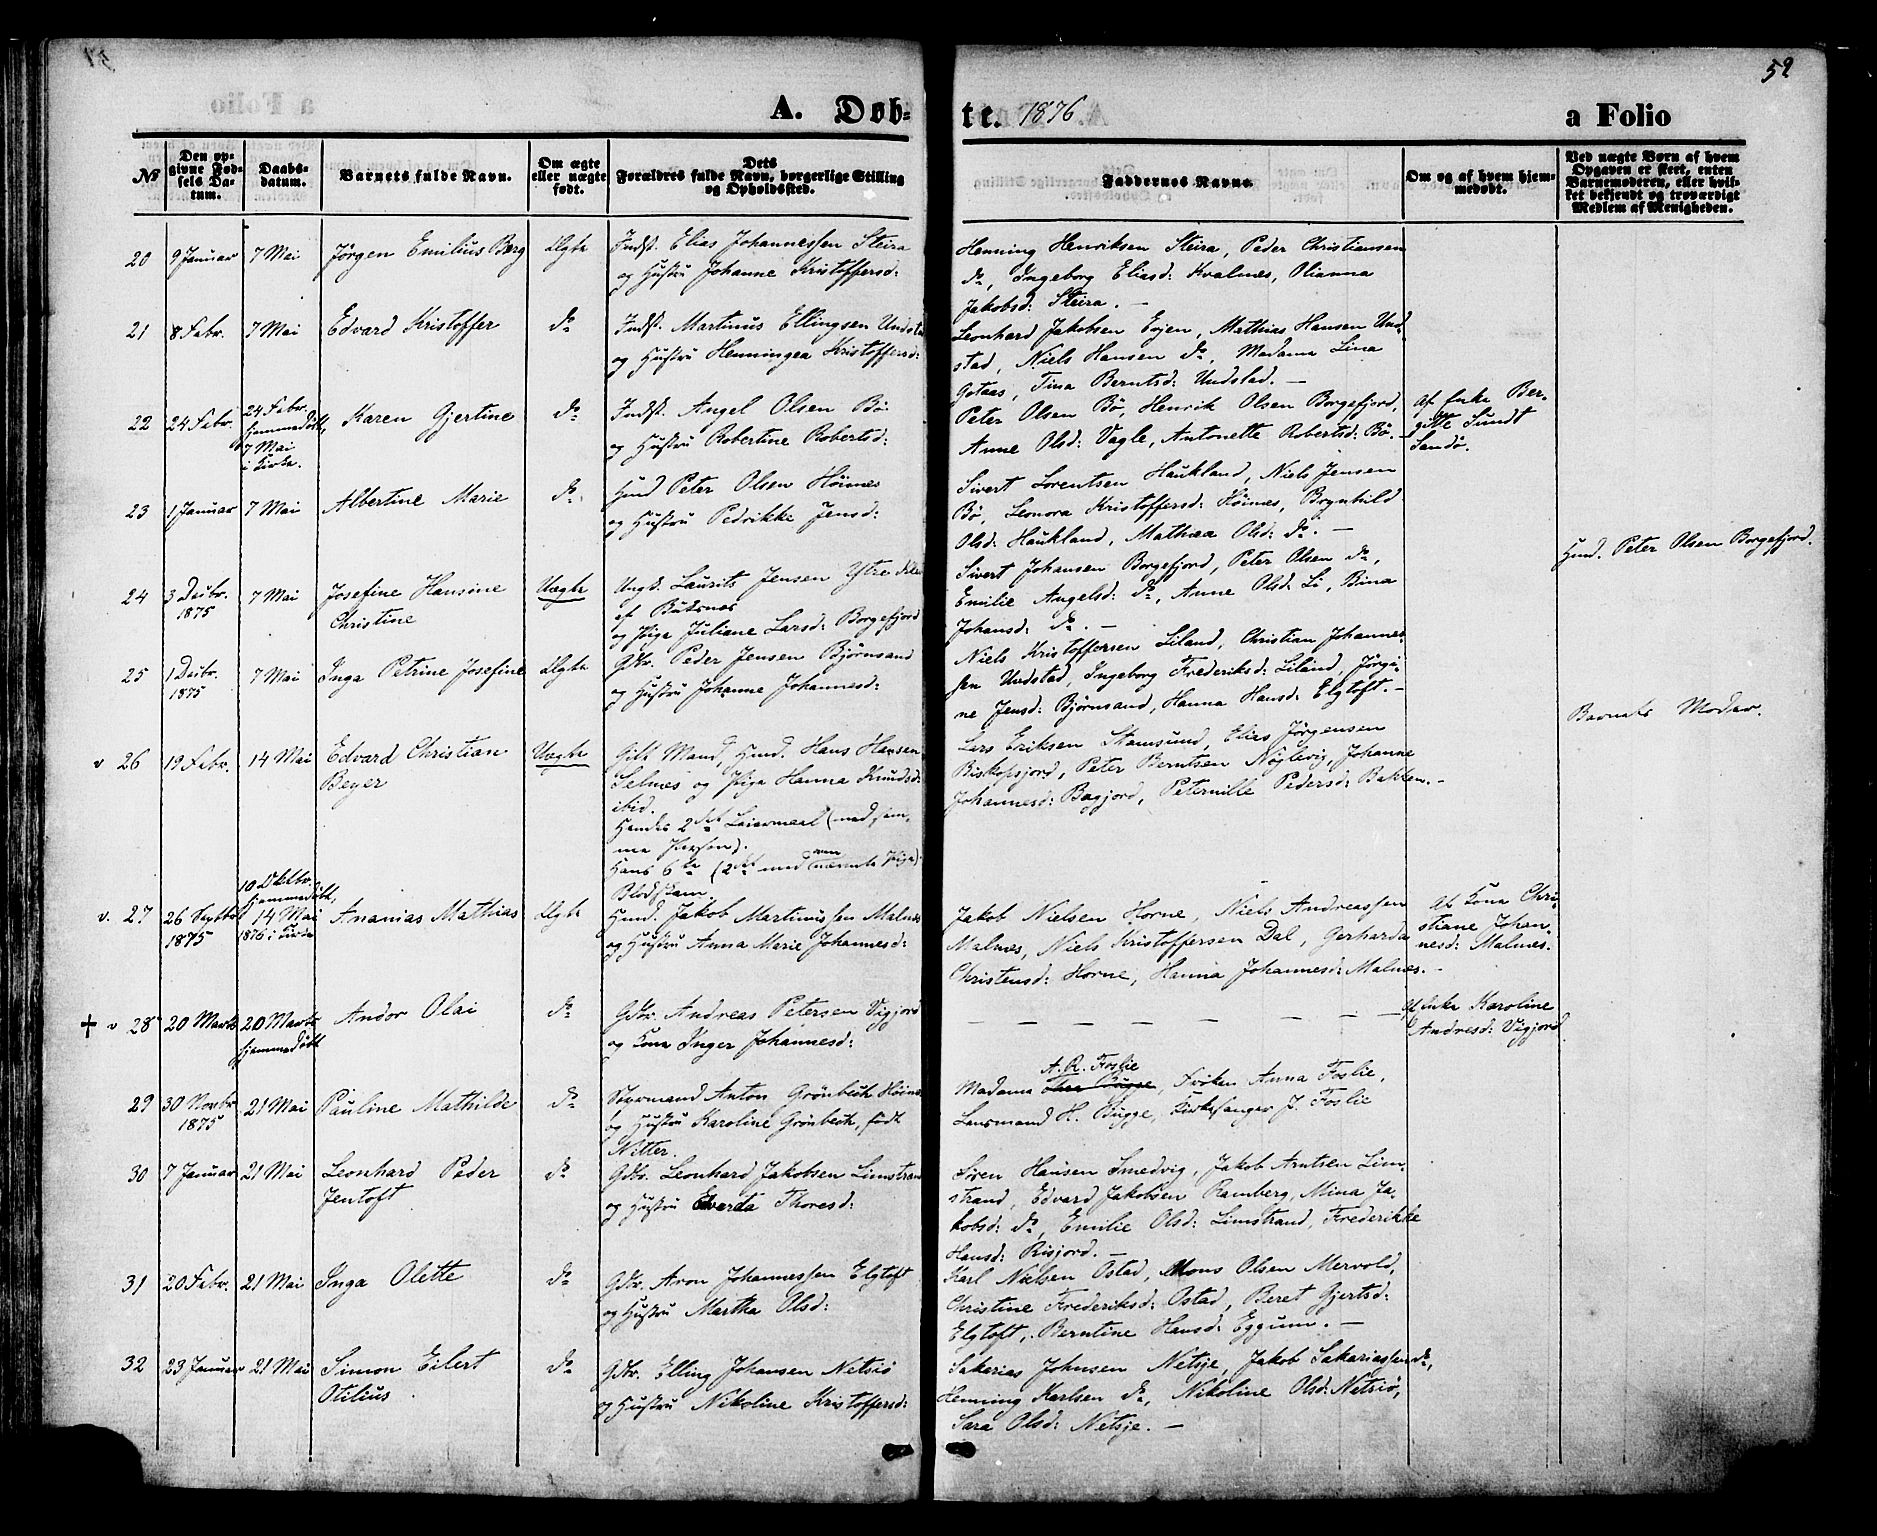 52
A. Døb-
te. 1876
a Folio
No
Den op-
givne Fød-
sels Da-
tum.
Daabs-
datum.
Barnets fulde Navn.
Om ægte
eller uægte
født.
Dets
Forældres fulde Navn, borgerlige Stilling
og Opholdssted.
Faddernes Navne.
Om og af hvem hjem-
medøbt.
Ved uægte Børn af hvem
Opgaven er skeet, enten
Barnemoderen, eller hvil-
ket bekjendt og troværdigt
Medlem af Menigheden.
20
9 Januar
7 Mai
Jørgen Emilius Berg
Ægte
Indst. Elias Johannessen Steira
og Hustru Johanne Kristoffersd:
Henning Henriksen Steira, Peder Christiansen
do, Ingeborg Eliasd: Kvalnes, Olianna
Jakobsd: Steira. —
21
8 Febr.
7 Mai
Edvard Kristoffer
do
Indst. Martinus Ellingsen Undstad
og Hustru Henningea Kristoffersd:
Leonhard Jakobsen Evjen, Mathias Hansen Und-
stad, Niels Hansen do, Madame Lina
Gotaas, Tina Berntsd: Undstad. —
22
24 Febr.
24 Febr.
hjemmedøbt,
7 Mai
i Kirke.
Karen Gjertine
do
Indst. Angel Olsen Bø
og Hustru Robertine Robertsd:
Peter Olsen Bø, Henrik Olsen Borgefjord,
Anne Olsd: Vagle, Antonette Robertsd: Bø. —
Af Enke Ber-
gitte Sundt
Sandø.
23
1 Januar
7 Mai
Albertine Marie
do
Hmd Peter Olsen Höines
og Hustru Pedrikke Jensd:
Sivert Lorentsen Haukland, Niels Jensen
Bø, Leonora Kristoffersd: Höines, Brynhild
Olsd: Haukland, Mathea Olsd: do. —
24
3 Decbr.
1875
7 Mai
Josefine Hansine
Christine
Uægte
Ungk. Laurits Jensen Ytre
af Buksnes
og Pige Juliane Larsd: Borgefjord
Sivert Johansen Borgefjord, Peter Olsen do,
Emilie Angelsd: do, Anne Olsd: Li, Bina
Johansd: do. —
Hmd. Peter Olsen Borgefjord.
25
1 Decbr.
1875
7 Mai
Inga Petrine Josefine
Ægte
Gbr. Peder Jensen Bjørnsand
og Hustru Johanne Johannesd:
Niels Kristoffersen Liland, Christian Johannes-
sen Undstad, Ingeborg Frederiksd: Liland, Jørgi-
ne Jensd: Bjørnsand, Hanna Hansd: Elgtoft. —
v 26
19 Febr.
14 Mai
Edvard Christian
Beyer
Uægte
Gift Mand, Hmd. Hans Hansen
Selnes og Pige Hanna Knudsd:
ibid.
Hendes 2det Leiermaal (med sam-
me Person).
Hans 6te (2det med nævnte Pige).
Blodskam
Lars Eriksen Stamsund, Elias Jørgensen
Biskopsjord, Peter Berntsen Nøglevig, Johanne
Johannesd: Bagjord, Peternille Pedersd: Bakken. —
Barnets Moder.
v. 27
26 Septbr
1875
10 Oktbr.
hjemmedøbt,
14 Mai
1876 i Kirke
Ananias Mathias
Ægte
Hmd. Jakob Martinussen Malnes
og Hustru Anna Marie Johannesd:
Jakob Nielsen Horne, Niels Andreassen
Malnes, Niels Kristoffersen Dal, Gerharda
Christensd: Horne, Hanna Johannesd: Malnes. —
Af Kona Chri-
stiane Johan-
nesd: Malnes.
† v 28
20 Marts
20 Marts
hjemmedøbt
Andor Olai
do
Gbr. Andreas Petersen Vigjord
og Kone Inger Johannesd:
— — — — — — — —
Af Enke Karoline
Andresd: Vigjord
29
30 Novbr
1875
21 Mai
Pauline Mathilde
do
Styrmand Anton Grönbech Höines
og Hustru Karoline Grönbech, født
Nitter.
A. R. Foslie
Madame Thea Bugge, Frøken Anna Foslie,
Lensmand H. Bugge, Kirkesanger J. Foslie
30
7 Januar
21 Mai
Leonhard Peder
Jentoft
do
Gbr. Leonhard Jakobsen Limstrand
og Hustru Edvarda Thoresd:
Sören Hansen Smedvig, Jakob Arntsen Lim-
strand, Edvard Jakobsen Ramberg, Mina Ja-
kobsd: do, Emilie Olsd: Limstrand, Frederikke
Hansd: Risjord. —
31
20 Febr.
21 Mai
Inga Olette
do
Gbr. Aron Johannessen Elgtoft
og Hustru Martha Olsd:
Karl Nielsen Ostad, Mons Olsen Mervold,
Christine Frederiksd: Ostad, Beret Gjertsd:
Elgtoft, Berntine Hansd: Eggum. —
32
23 Januar
21 Mai
Simon Eilert
Otilius
do
Gbr. Elling Johansen Netsiö
og Hustru Nikoline Kristoffersd:
Sakarias Johnsen Netsje, Jakob Sakariassen do,
Henning Karlsen do, Nikoline Olsd: Netsiö,
Sara Olsd: Netsje. —